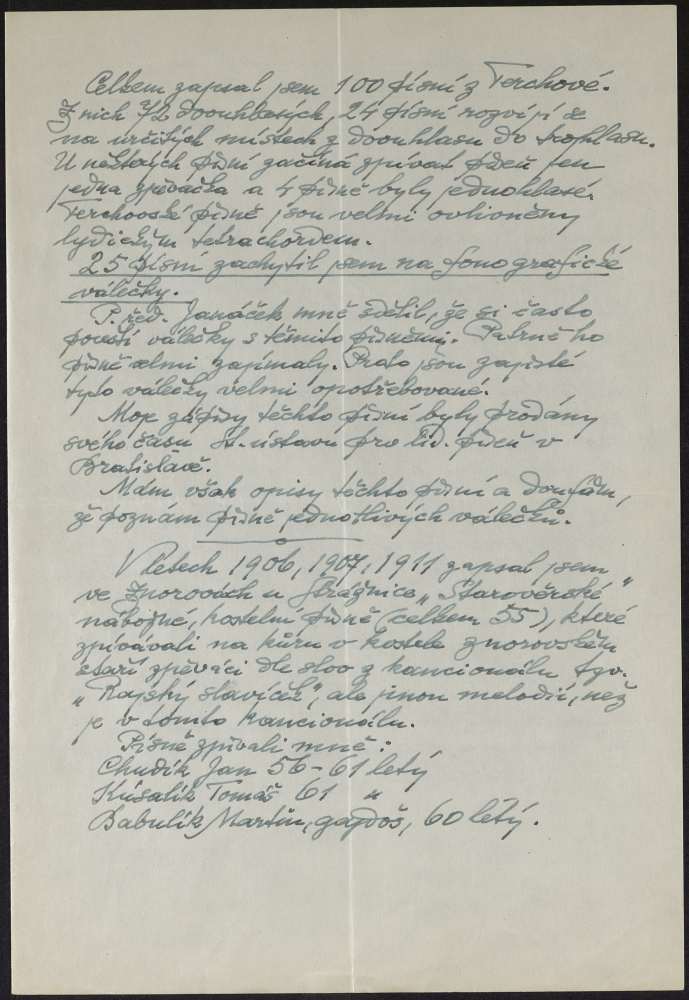 Celkem zapsal jsem 100 písní z Terchové.
Z nich 72 dvouhlasých, 24 písní rozvíjí se
na určitých místech z dvouhlasu do trojhlasu.
U některých písní začíná zpívat píseň jen
jedna zpěvačka a 4 písně byly jednohlasé.
Terchovské písně jsou velmi ovlivněny
lydickým tetrachordem.
25 písní zachytil jsem na fonografické
válečky.
P. řed. Janáček mně sdělil, že si často
pouští válečky s těmito písněmi. Patrně ho
písně velmi zajímaly. Proto jsou zajisté
tyto válečky velmi opotřebované.
Moje zápisy těchto písní byly prodány
svého času st. ústavu pro lid. píseň v
Bratislavě.
Mám však opisy těchto písní a doufám,
že poznám písně jednotlivých válečků.
V letech 1906, 1907, 1911 zapsal jsem
ve Znorovách u Strážnice „Starověrské"
nábožné, kostelní písně (celkem 55), které
zpívávali na kůru v kostele znorovském
staří zpěváci dle slov z kancionálu tzv.
„Rajský slavíček", ale jinou melodií, než
je v tomto kancionálu.
Písně zpívali mně:
Chudík Jan 56-61 letý
Kúsalík Tomáš 61 "
Babulík Martin, gajdoš, 60 letý.